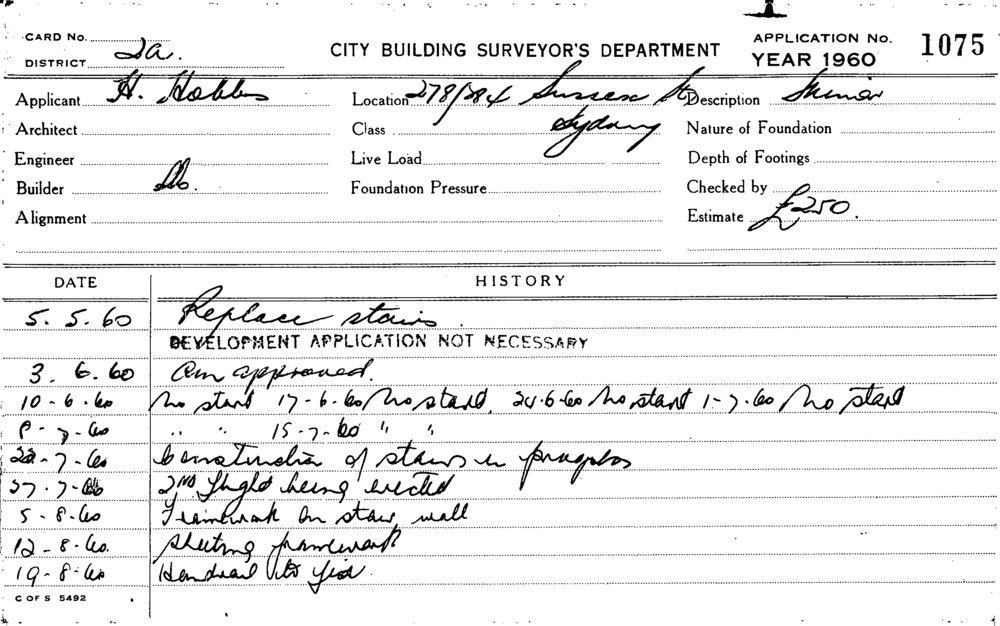 CARD No.
DISTRICT 2a.
CITY BUILDING SURVEYOR'S DEPARTMENT
APPLICATION No. 1075
YEAR 1960
Applicant H. Hobbs Location 278/284 Sussex St Description Minor
Architect Class Sydney Nature of Foundation
Engineer Live Load Depth of Footings
Builder Do. Foundation Pressure Checked by
Alignment Estimate £250.
DATE HISTORY
5.5.60 Replace stairs
DEVELOPMENT APPLICATION NOT NECESSARY
3.6.60 approved.
10-6-60 No start 17-6-60 No start. 24-6-60 No start 1-7-60 No start
8-7-60 " " 15-7-60 " "
22-7-60 Construction of stairs in progress
27-7-60 2nd flight being erected
5-8-60 Framework on stair wall
12-8-60. Sheeting framework
19-8-60 Handrail to fix
C OF S 5492